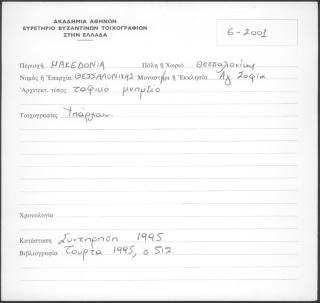 ΑΚΑΔΗΜΙΑ ΑΘΗΝΩΝ
ΕΥΡΕΤΗΡΙΟ ΒΥΖΑΝΤΙΝΩΝ ΤΟΙΧΟΓΡΑΦΙΩΝ
ΣΤΗΝ ΕΛΛΑΔΑ
6-2001
Περιοχή ΜΑΚΕΔΟΝΙΑ Πόλη ή Χωριό Θεσσαλονίκη
Νομός ή Ἐπαρχία ΘΕΣΣΑΛΟΝΙΚΗΣ Μοναστήρι ή Ἐκκλησία Αγ. Σοφία
Αρχιτεκτ. τύπος ταφικό μνημείο
Τοιχογραφίες Υπάρχουν
Χρονολογία
Κατάσταση Συντήρηση 1995
Βιβλιογραφία Τούρτα 1995, σ. 512.